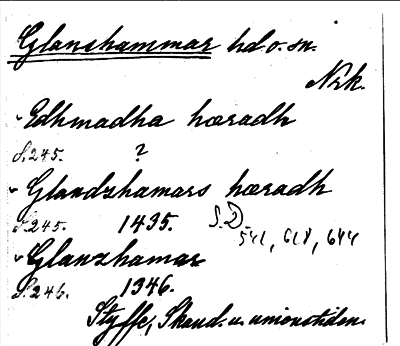 Glanshammar hd o. sn.
Nrk.
Edhmadha hæradh
S. 245. ?
Glandzhamars hæradh
S. 245. 1435. S.D. 541, 618, 644
Glanzhamar
S. 246. 1346.
Styffe, Skand. u. unionstiden.